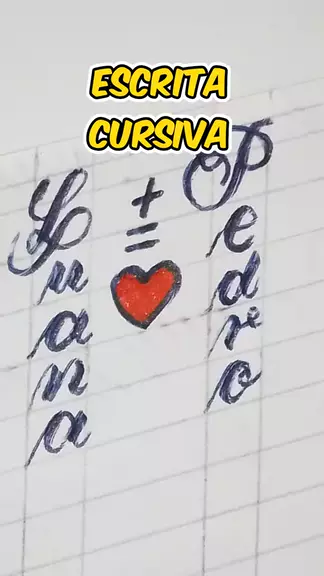 ESCRITA
CURSIVA
Luana
+
=
Pedro